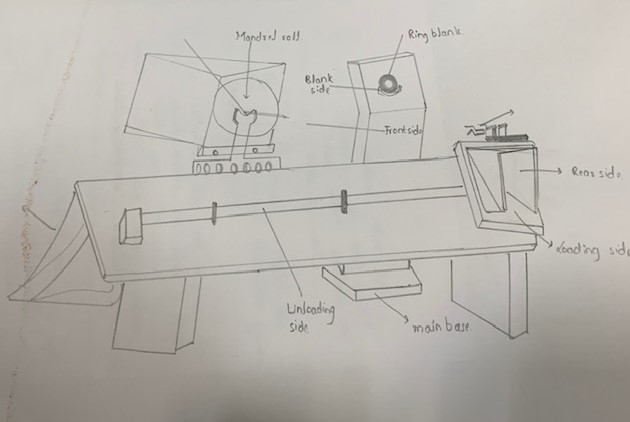 Mandrel roll.
Ring blank
Blank
side
Front side
Rear side.
Loading side
Unloading
side
main base.